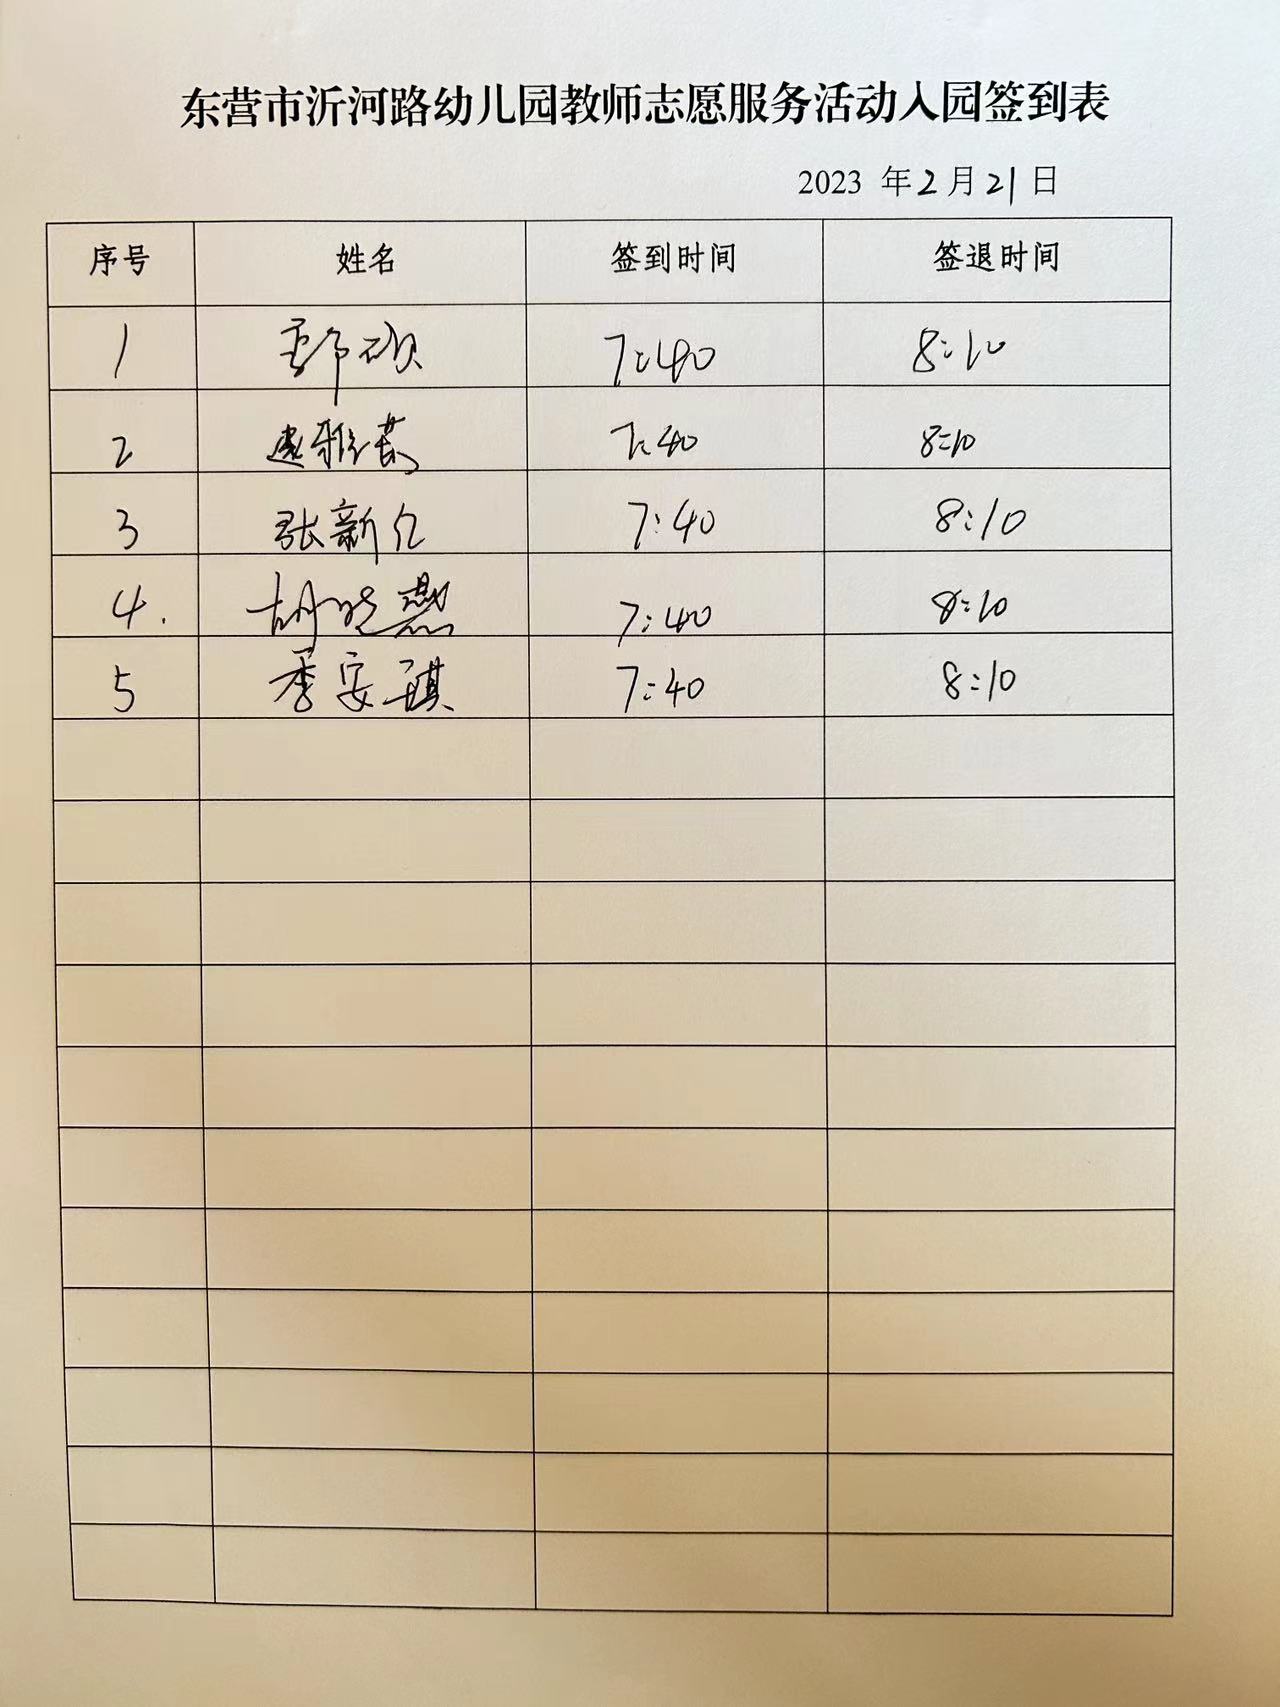 东营市沂河路幼儿园教师志愿服务活动入园签到表
2023 年2月21日
序号 姓名 签到时间 签退时间
1 7:40 8:10
2 7:40 8:10
3 张新 7:40 8:10
4. 胡晓燕 7:40 8:10
5 季安琪 7:40 8:10